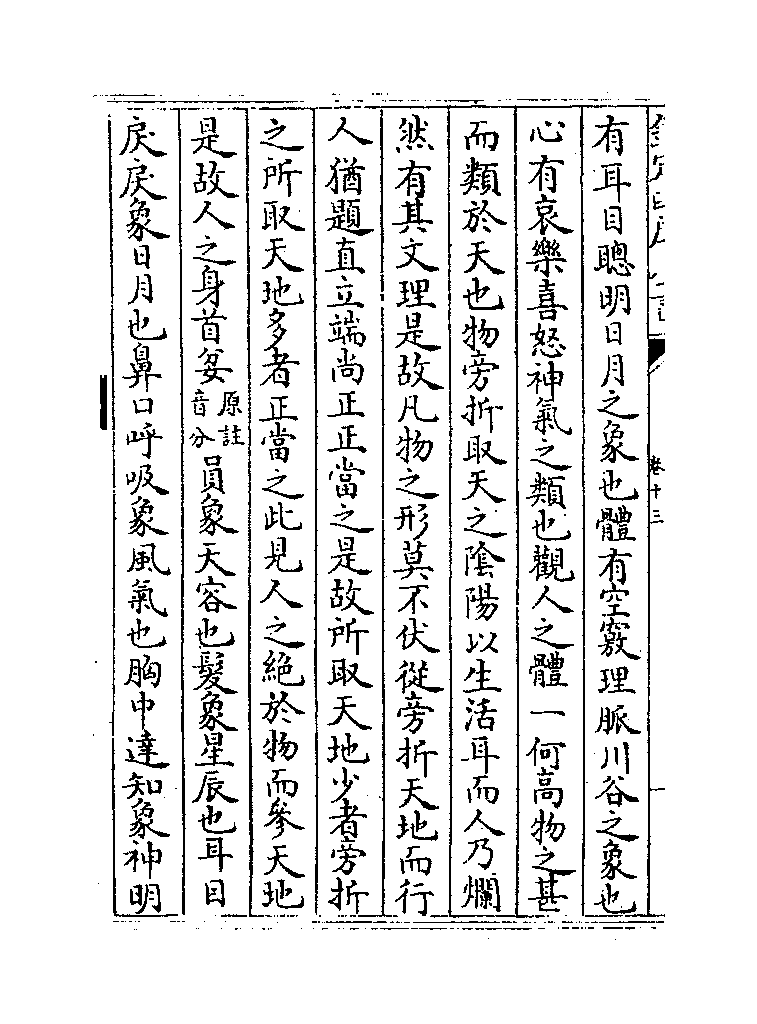 卷十三
一
有耳目聰明日月之象也體有空竅理脈川谷之象也
心有哀樂喜怒神氣之類也觀人之體一何高物之甚
而類於天也物旁折取天之陰陽以生活耳而人乃爛
然有其文理是故凡物之形莫不伏從旁折天地而行
人猶題直立端尚正正當之是故所取天地少者旁折
之所取天地多者正當之此見人之絶於物而參天地
是故人之身首原註音分員象天容也髮象星辰也耳目
戾戾象日月也鼻口呼吸象風氣也胸中達知象神明